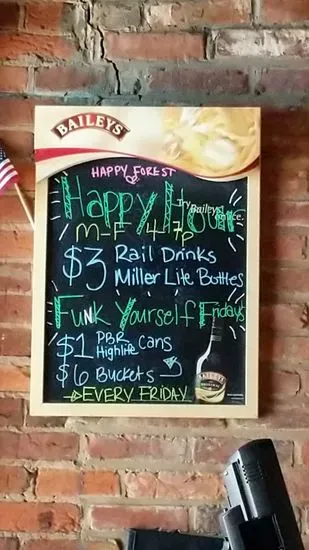 BAILEYS
HAPPY FOREST
Happy Hour
Try Baileys
M-F 4-7p
$3 Rail Drinks
Miller Lite Bottles
Funk Yourself Fridays
$1 PBR Highlife Cans
$6 Buckets
EVERY FRIDAY
BAILEYS